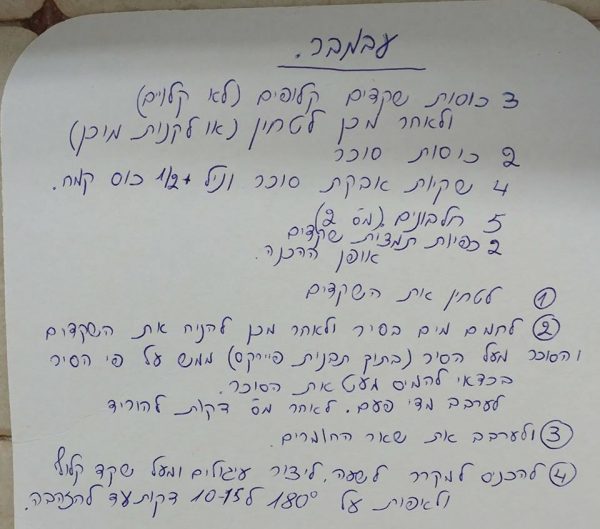 עבמבר.
3 כוסות שקדים קלופים (לא קלוים)
ולאחר מכן לטחין (או לקנות מוכן)
2 כוסות סוכר
4 שקיות אבקת סוכר וניל + 1/2 כוס קמח.
5 חלבונים (מס 2)
2 כפיות תמצית שקדים
אופן ההכנה.
① לטחין את השקדים
② לחמם מים בסיר ולאחר מכן להניח את השקדים
והסוכר מעל הסיר (בתוק תבנית פיירקס) ממש על פי הסיר
בכדאי להמיס מעט את הסוכר.
לערבב מדי פעם. לאחר מס דקות להוריד
③ ולערבב את שאר החומרים.
④ להכניס למקרר לשעה. ליצור עיגולים ומעל שקד קלוף
ולאיפות על 180° ל 10-15 דקות עד להזהבה.